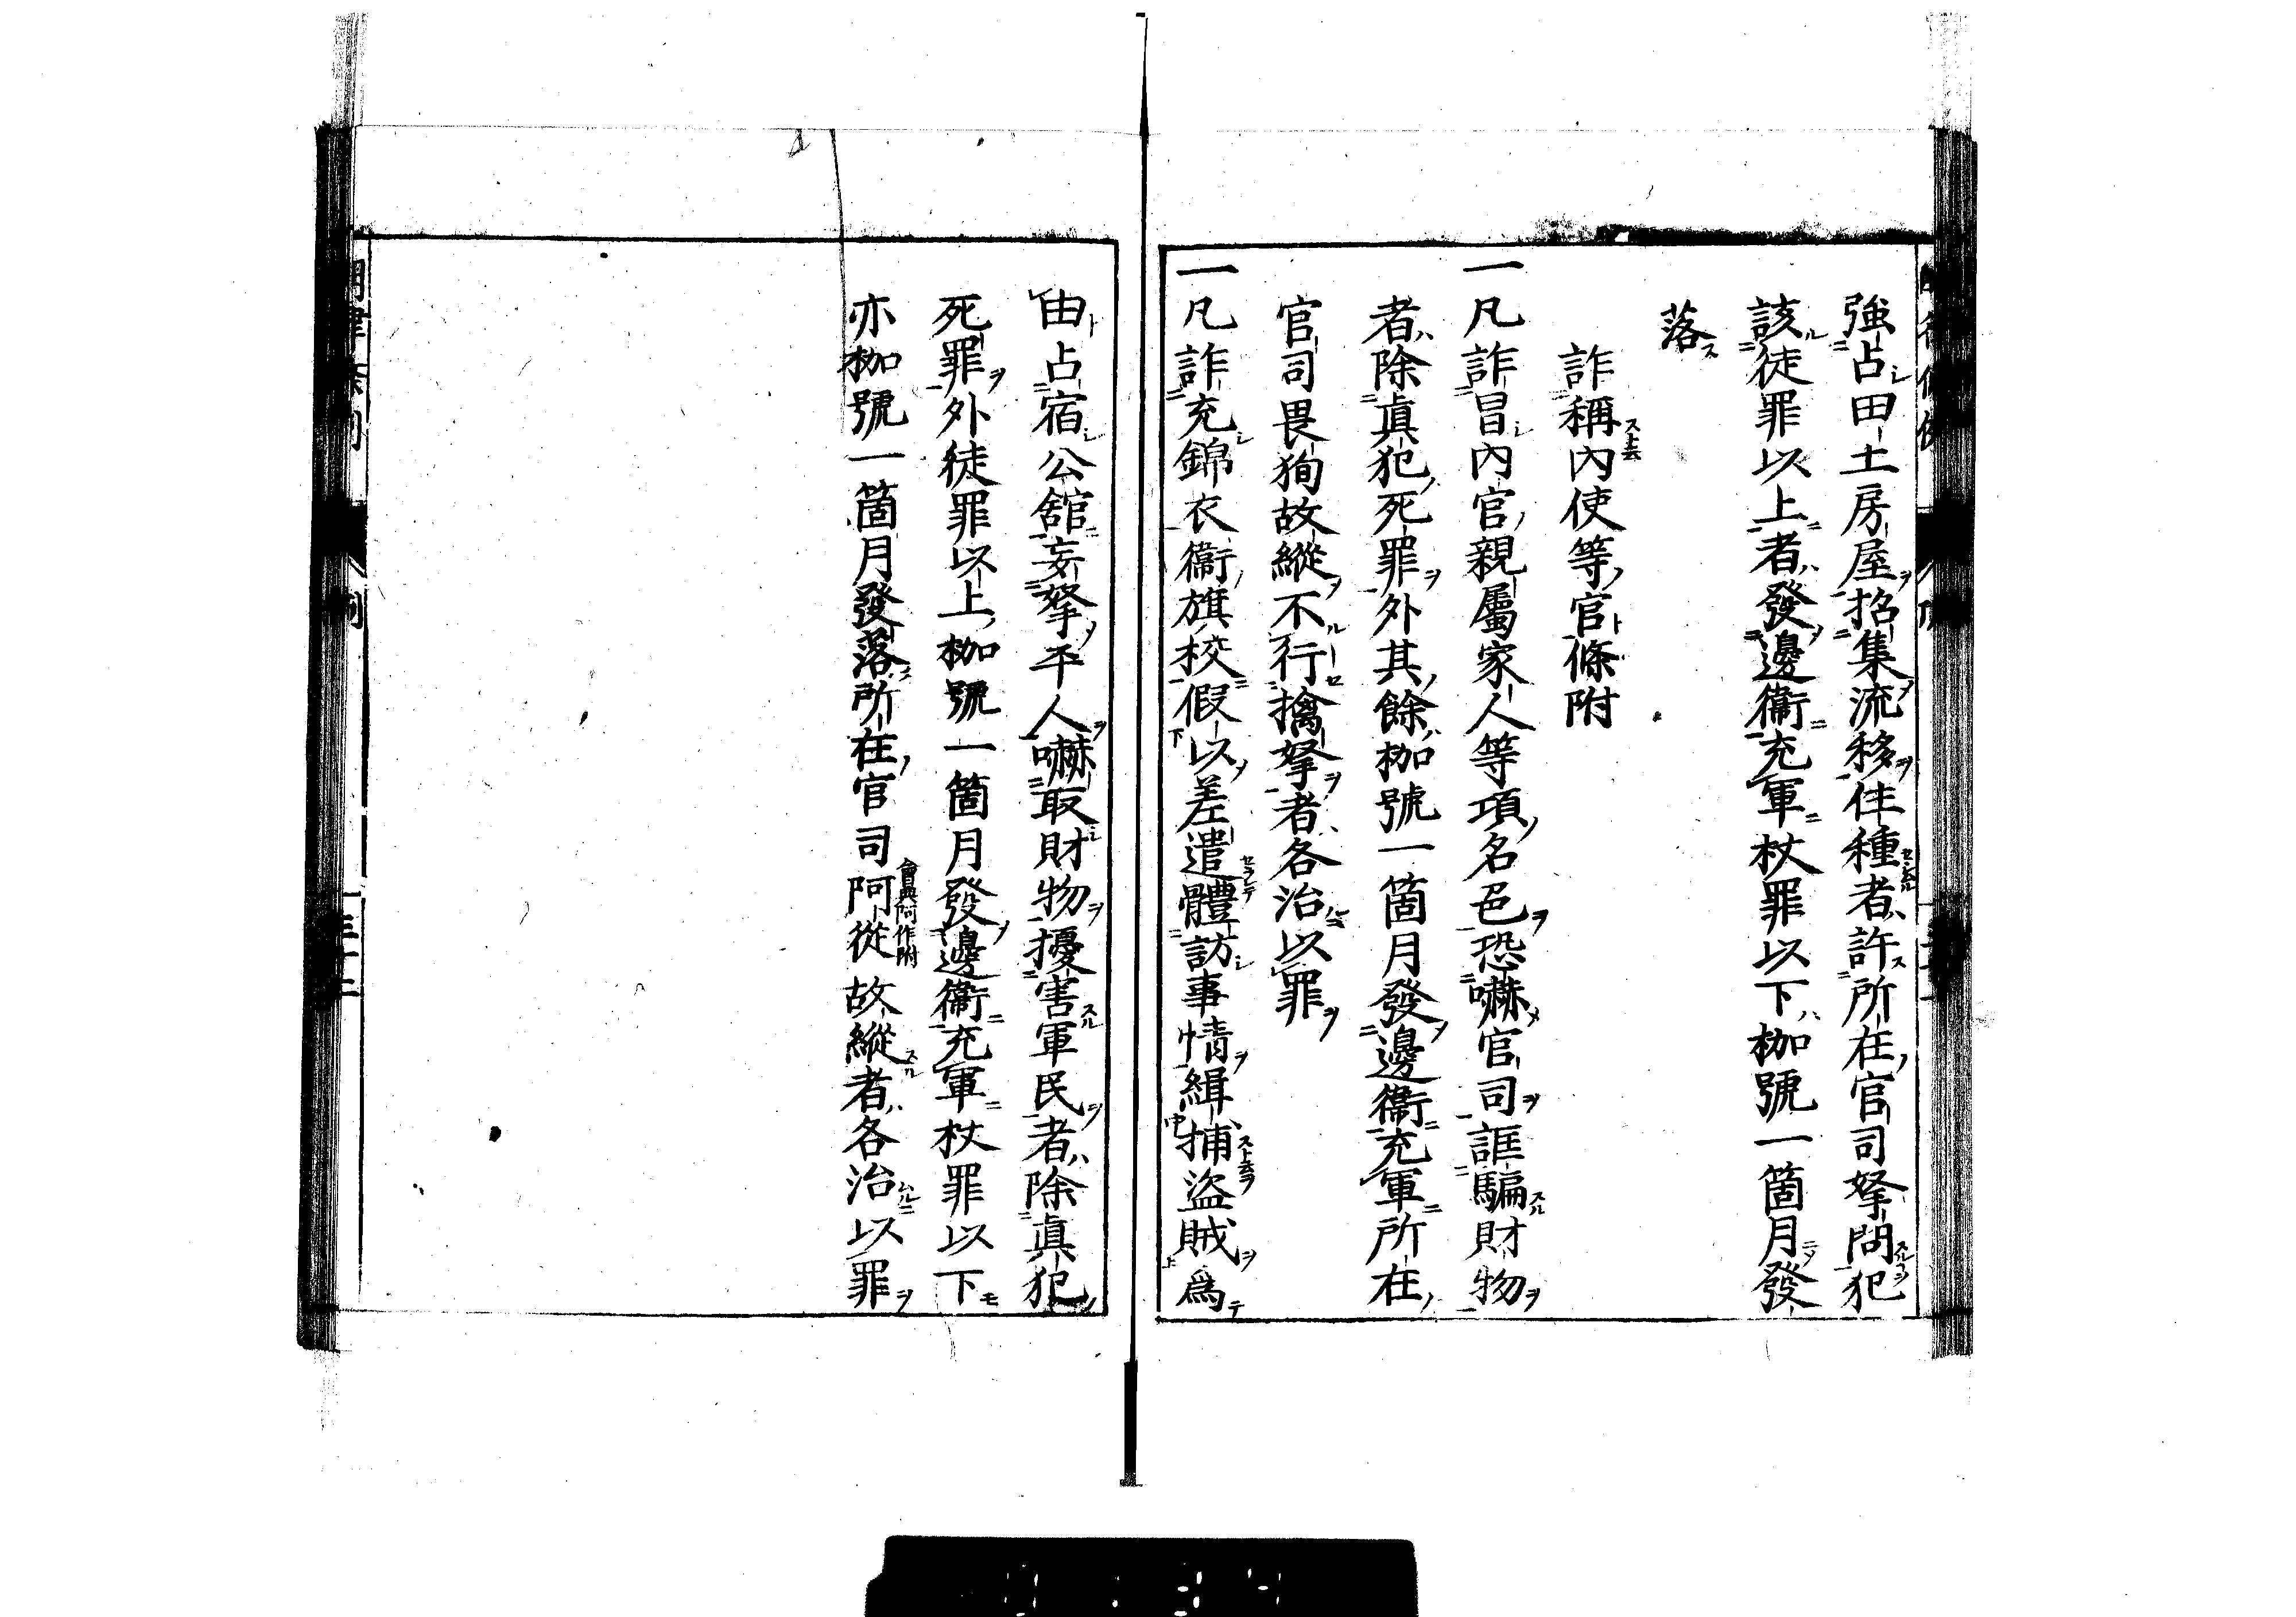 強占田土房屋招集流移住種者許所在官司拏問犯
該徒罪以上者發邊衞充軍杖罪以下枷號一箇月發
落
詐稱内使等官條附
一凡詐冒内官親屬家人等項名色恐嚇官司誆騙財物
者除眞犯死罪外其餘枷號一箇月發邊衞充軍所在
官司畏狥故縱不行擒拏者各治以罪
一凡詐充錦衣衞旗校假以差遣體訪事情緝捕盜賊爲
由占宿公舘妄拏平人嚇取財物擾害軍民者除眞犯
死罪外徒罪以上枷號一箇月發邊衞充軍杖罪以下
亦枷號一箇月發落所在官司阿從會典阿作附故縱者各治以罪